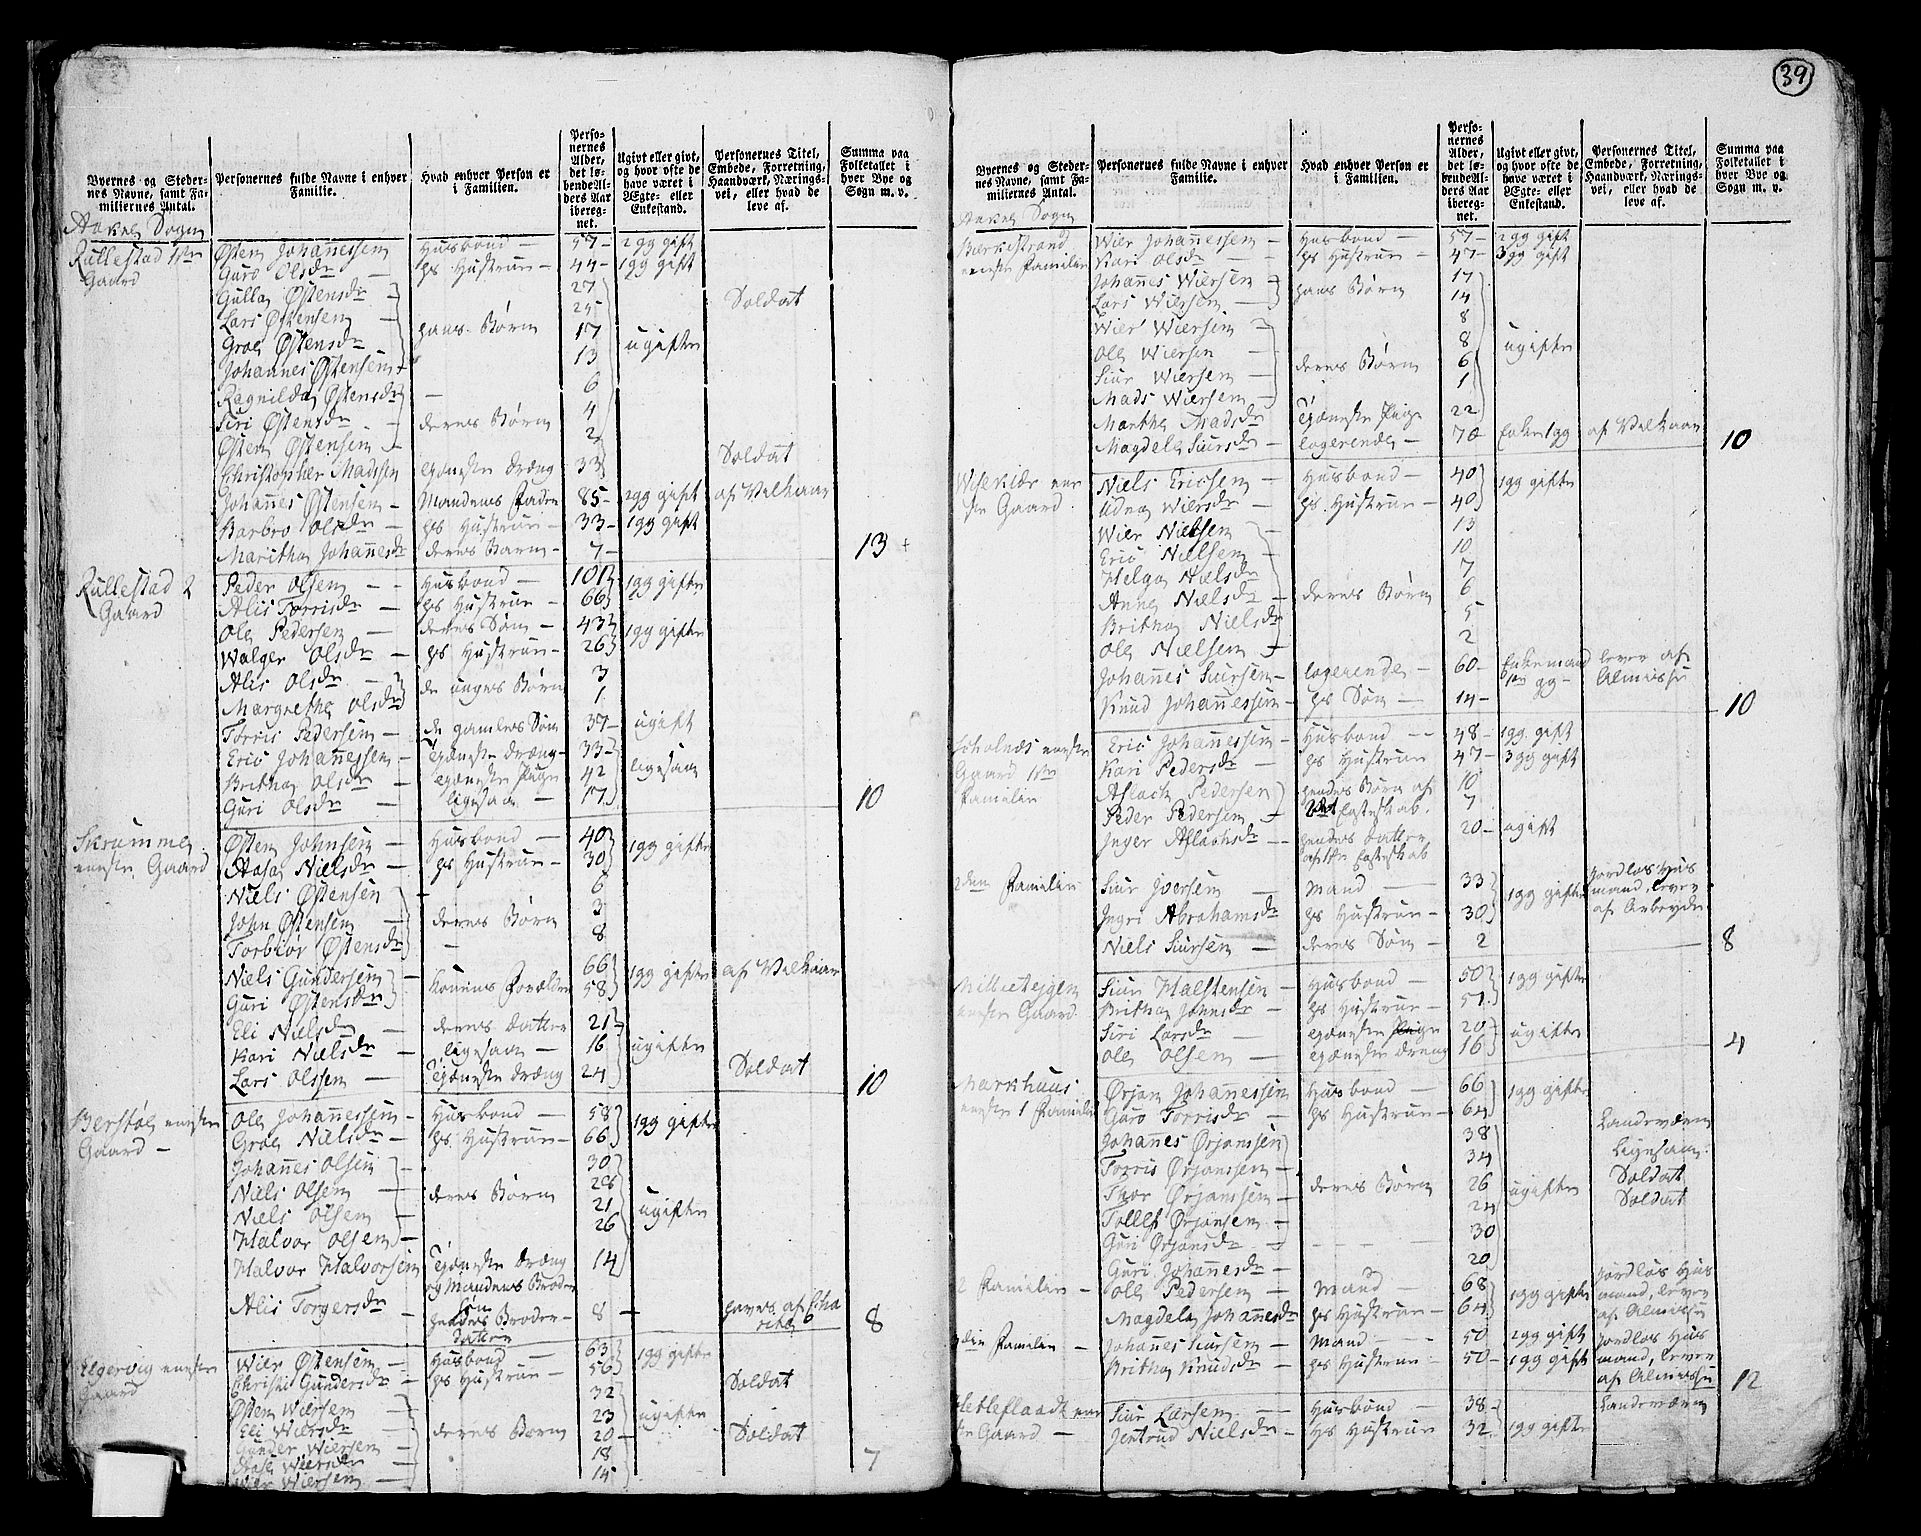 39
Byernes og Stedernes Navne, samt Familiernes Antal.
Personernes fulde Navne i enhver Familie.
Hvad enhver Person er i Familien.
Personernes Alder, det løbende Alders Aar iberegnet.
Ugivt eller givt, og hvor ofte de have været i Ægte- eller Enkestand.
Personernes Titel, Embede, Forretning, Haandværk, Næringsvei, eller hvad de leve af.
Summa paa Folketallet i hver Bye og Sogn m. v.
Aaker Sogn
Rullestad 1ste Gaard
Østen Johannessen Husbond 57 2gg gift
Guro Olsdr hs Hustrue 44 1gg gift
Gulla Østensdr 27
Lars Østensen 25 Soldat
Groe Østensdr hans Børn 17 ugifte
Johannes Østensen 13
Ragnilda Østensdr 6
Siri Østensdr 4
Østen Østensen deres Børn 2
Christopher Madssen tjeneste dreng 33 Soldat
Johannes Østensen Mandens Fader 85 2gg gift af Vilkaar
Barbro Olsdr hs Hustrue 33 1gg gift
Maritha Johannesdr deres Barn 7
13
Rullestad 2 Gaard
Peder Olsen Husbond 101 1gg gifte
Alis Torrisdr hs Hustrue 66
Ole Pedersen deres Søn 43 1gg gifte
Walger Olsdr hs Hustrue 26
Alis Olsdr 3
Margrethe Olsdr de unges Børn 1
Torris Pedersen de gamles Søn 37 ugift
Eric Johannessen Tjeneste dreng 33
Britha Olsdr Tjeneste Pige 42 ligesaa
Guri Olsdr ligesaa 17
10
Skrumme eneste Gaard
Østen Johnsen Husbond 40 1gg gifte
Aasa Nielsdr hs Hustrue 30
Niels Østensen 6
John Østensen deres Børn 3
Torbiør Østensdr 8
Niels Gundersen 66 1gg gifte af Vilkaar
Guri Østensdr Konens Forældre 58
Eli Nielsdr deres datter 21
Kari Nielsdr ligesaa 16 ugifte
Lars Olssen Tjeneste dreng 24 Soldat
10
Berstøl eneste Gaard
Ole Johannessen Husbond 58 1gg gifte
Groe Nielsdr hs Hustrue 66
Johannes Olsen 30
Niels Olsen deres Børn 28
Niels Olsen 21 ugifte
Halvor Olsen 26
Halvor Halvorsen Tjeneste dreng og Mandens Broder Søn 14
Alis Torgersdr hendes Broder datter 8
8
eneste Gaard
Wier Østensen Husbond 63 1gg gifte
Christi Gundersdr hs Hustrue 56
Østen Wiersen 32 Soldat
Eli Wiersdr 23 ugifte
Gunder Wiersen deres Børn 20 Soldat
Aase Wiersdr 18
Wier Wiersen 14
7
Byernes og Stedernes Navne, samt Familiernes Antal.
Personernes fulde Navne i enhver Familie.
Hvad enhver Person er i Familien.
Personernes Alder, det løbende Alders Aar iberegnet.
Ugivt eller givt, og hvor ofte de have været i Ægte- eller Enkestand.
Personernes Titel, Embede, Forretning, Haandværk, Næringsvei, eller hvad de leve af.
Summa paa Folketallet i hver Bye og Sogn m. v.
Aaker Sogn
Birkestrand eneste Familie
Wier Johannessen Husbond 57 2gg gift
Kari Olsdr hs Hustrue 47 3gg gift
Johannes Wiersen hans Børn 17
Lars Wiersen 14
Wier Wiersen 8
Ole Wiersen 8 ugifte
Siur Wiersen deres Børn 6
Mads Wiersen 1
Martha Madsdr Tjeneste Pige 22
Magdele Siursdr logerende 70 Enke 1gg af Vilkaar
10
eneste Gaard
Niels Ericsen Husbond 40 1gg gifte
Udna Wiersdr hs Hustrue 40
Wier Nielsen 13
Eric Nielsen 10
Helga Nielsdr 7
Anne Nielsdr deres Børn 6
Britha Nielsdr 5
Ole Nielsen 2
Johannes Siursen logerende 60 Enkemand 1ste gg lever af Almisse
Knud Johannessen hs Søn 14
10
eneste Gaard 1ste Familie
Eric Johannessen Husbond 48 1gg gift
Kari Pedersdr hs Hustrue 47 3gg gift
Aslach Pedersen hendes Børn af 10
Peder Pedersen Egteskab 7
Inger Aslachsdr hendes datter af 1ste Egteskab 20 ugift
2den Familie
Siur Joersen Mand 33 1gg gifte Jordløs Husmand, lever af Arbeyde
Ingri Abrahamsdr hs Hustrue 30
Niels Siursen deres Søn 2
8
Millieteigen eneste Gaard
Siur Halstensen Husbond 50 1gg gifte
Britha Johnsdr hs Hustrue 51
Siri Larsdr tjeneste Pige 20 ugifte
Ole Olsen tjeneste dreng 16
4
Markhuus eneste 1 Familie
Ørjan Johannessen Husbond 66 1gg gifte
Guro Torrisdr hs Hustrue 64
Johannes Ørjanssen 38 Landeværn
Torris Ørjanssen 34 Ligesaa
Thor Ørjanssen deres Børn 26 ugifte Soldat
Tollef Ørjansen 24 Soldat
Guri Ørjansdr 30
Guri Johannesdr 20
2 Familie
Ole Pedersen Mand 68 1gg gifte Jordløs Husmand, lever af Almisse
Magdela Johannesdr hs Hustrue 64
3die Familie
Johannes Siursen Mand 50 2gg gift Jordløs Husmand, lever af Almisse
Britha Knudsdr hs Hustrue 50 1gg gift
12
Hetleflaadt eneste Gaard
Siur Larsen Husbond 38 Landeværn
Jentrud Nielsdr hs Hustrue 32 1gg gifte